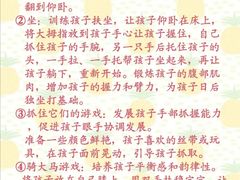 翻到仰卧。
②坐：训练孩子扶坐，让孩子仰卧在床上，
将大拇指放到孩子手心让孩子握住，自己
抓住孩子的手腕，另一只手后托住孩子的
头，一手拉、一手托帮孩子坐起来，再让
孩子躺下，重新开始。锻炼孩子的腹部肌
肉，增加孩子的握力和臂力，为日后孩子
独坐打基础。
③抓住它们的游戏：发展孩子手部抓握能力
，促进孩子眼手协调发展。
准备一些颜色鲜艳，孩子喜欢的丝带或玩
具，在孩子面前晃动，引导孩子抓取。
④骑大马游戏：培养孩子平衡感和韵律性。